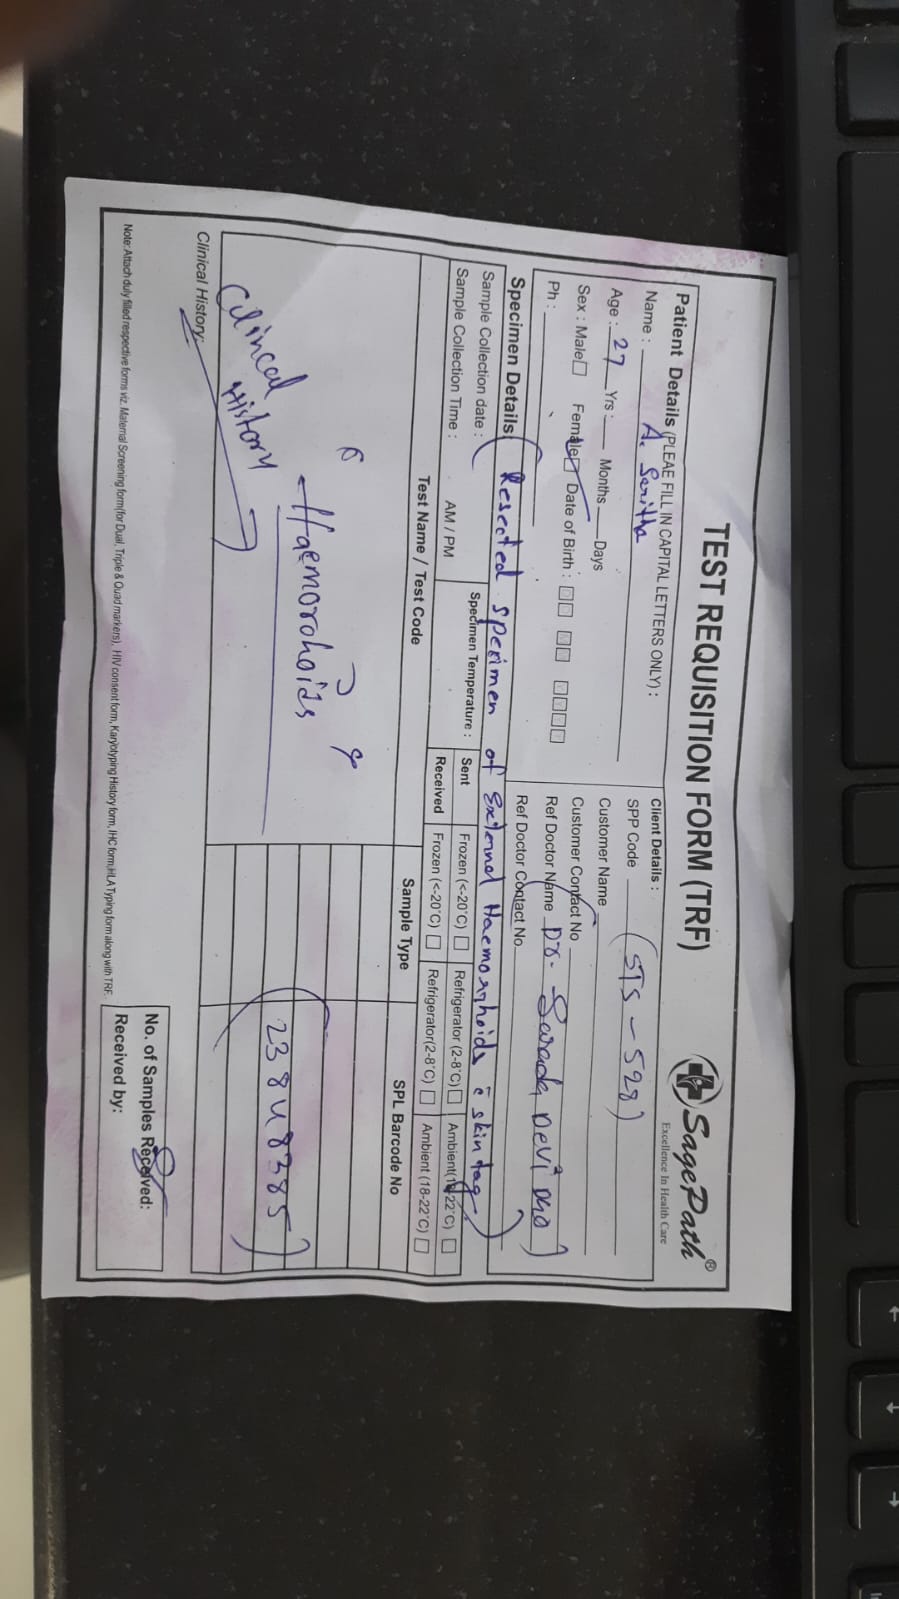 TEST REQUISITION FORM (TRF)
SagePath®
Excellence In Health Care
Patient Details (PLEAE FILL IN CAPITAL LETTERS ONLY) :
Name : A. Saritha
Age : 27 Yrs : Months Days
Sex : Male Female Date of Birth :
Ph :
Client Details :
SPP Code (STS - 528)
Customer Name
Customer Contact No
Ref Doctor Name Dr. Sarada Devi
Ref Doctor Contact No.
Specimen Details: (Resected specimen of External Haemorrhoids c̄ skin tag.)
Sample Collection date :
Sample Collection Time : AM / PM
Specimen Temperature :
Sent Frozen (<-20°C) Refrigerator (2-8°C) Ambient(18-22°C)
Received Frozen (<-20°C) Refrigerator(2-8°C) Ambient (18-22°C)
Test Name / Test Code Sample Type SPL Barcode No
Haemorohoids
(23848385)
Clinical History
Clinical History:
Note: Attach duly filled respective forms viz. Maternal Screening form(for Dual, Triple & Quad markers), HIV consent form, Karyotyping History form, IHC form,HLA Typing form along with TRF.
No. of Samples Received:
Received by: